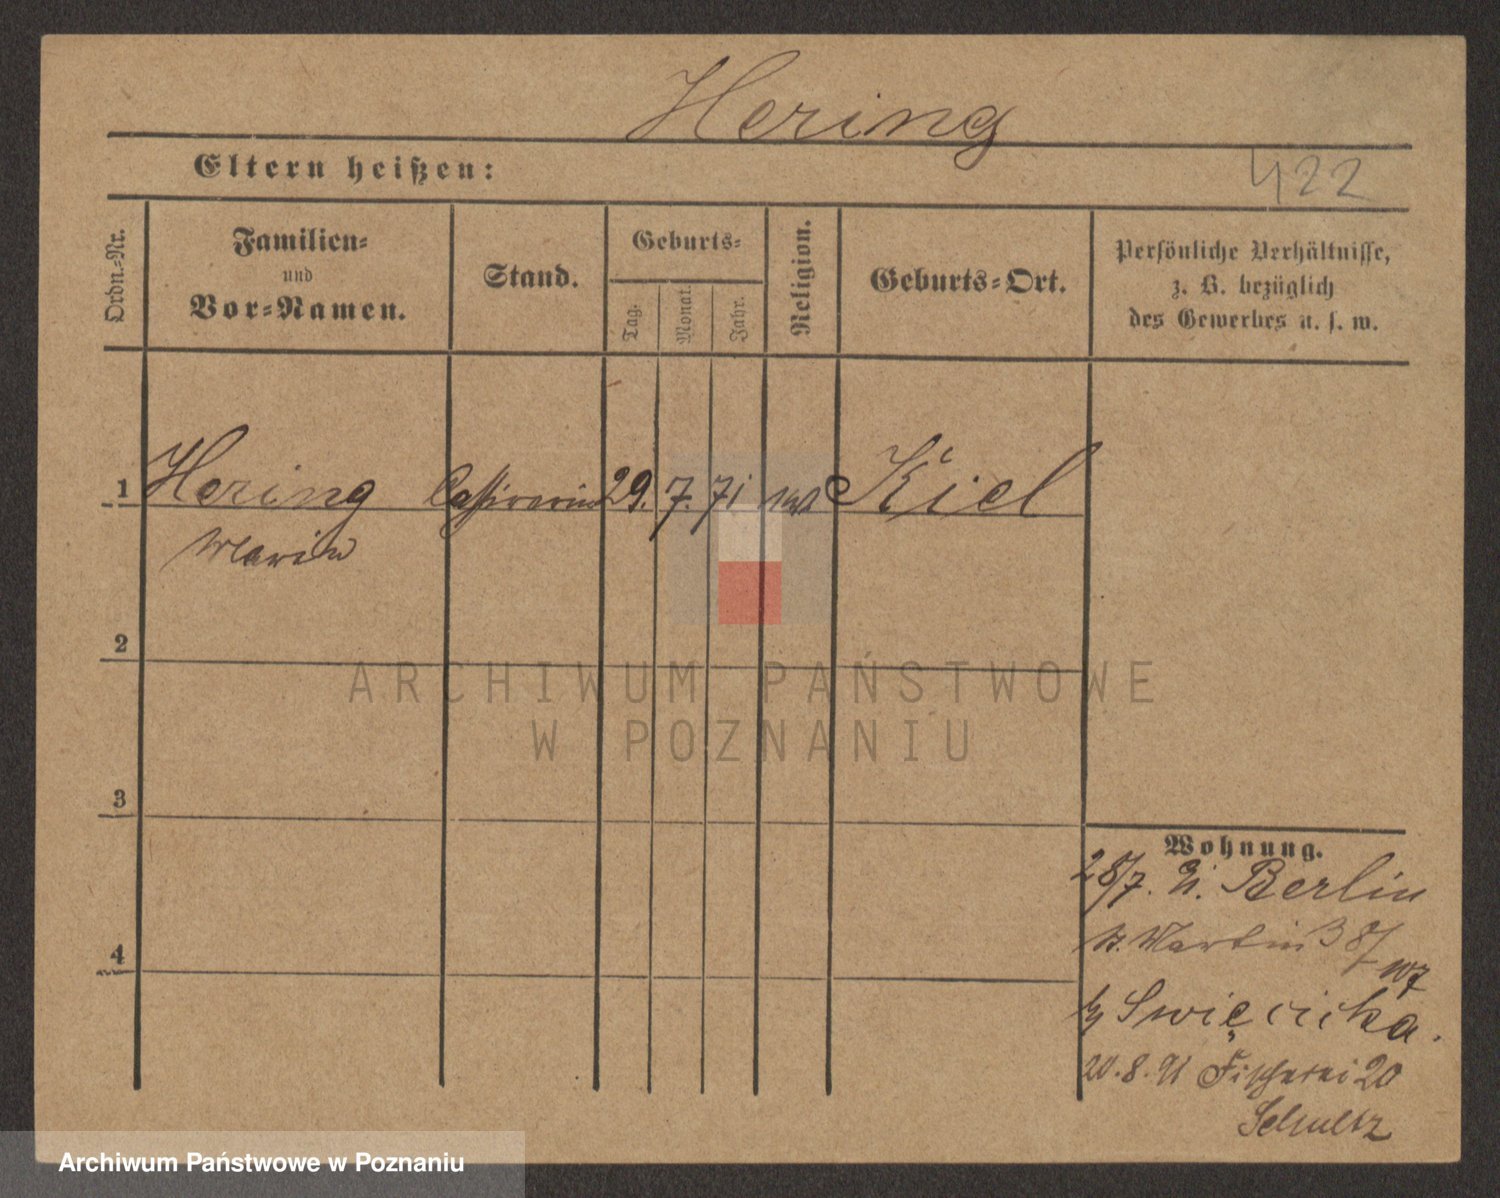 Hering
Eltern heißen:
422
Ordn.-Nr.
Familien-
und
Vor-Namen.
Stand.
Geburts-
Tag.
Monat.
Jahr.
Religion.
Geburts-Ort.
Persönliche Verhältnisse,
z. B. bezüglich
des Gewerbes u. s. w.
1 Hering Cassirerin 29. 7. 71 Kiel
Marie
2
3
4
Wohnung.
28/7. Berlin
St. Martin
Święcicka.
20.8.91 Fischerei 20
Schultz
ARCHIWUM PAŃSTWOWE
W POZNANIU
Archiwum Państwowe w Poznaniu